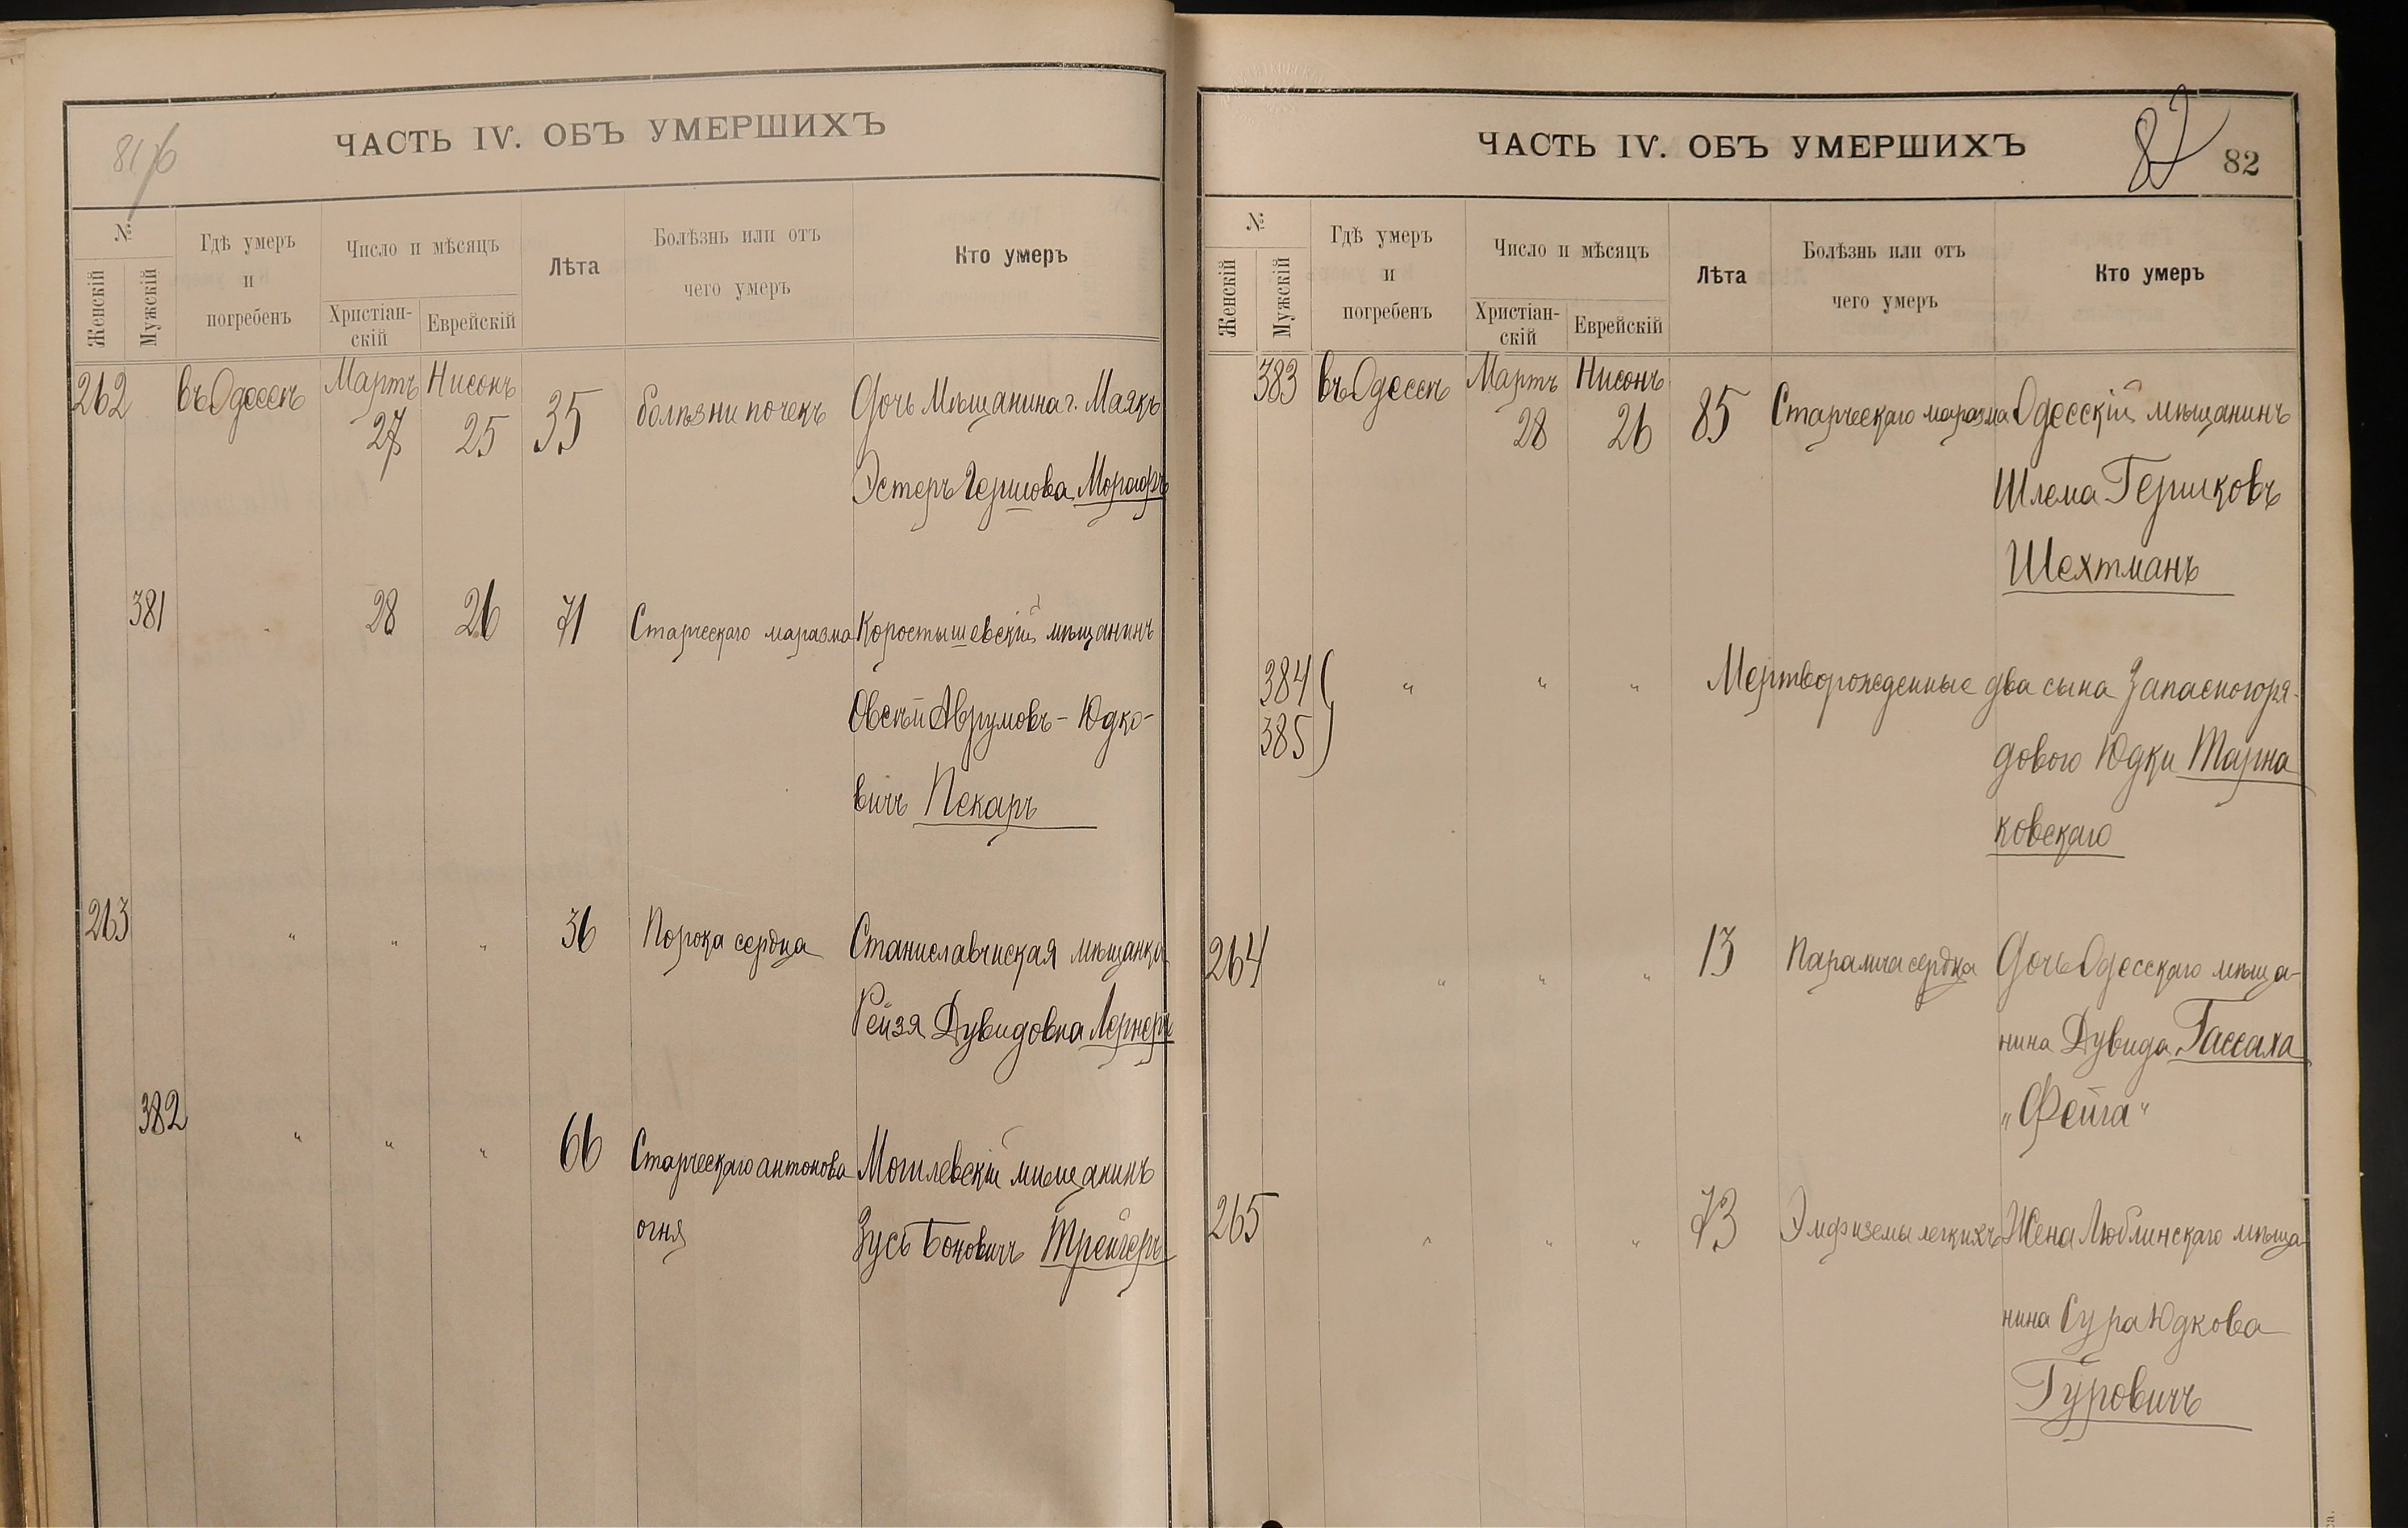 81 б
ЧАСТЬ IV. ОБЪ УМЕРШИХЪ
№
Женскій
Мужскій
Гдѣ умеръ
и
погребенъ
Число и мѣсяцъ
Христіан-
скій
Еврейскій
Лѣта
Болѣзнь или отъ
чего умеръ
Кто умеръ
262 въ Одессѣ Мартъ 27 Нисонъ 25 35 болѣзни почекъ Дочь Мѣщанина г. Маякъ
Эстеръ Гершова
381 28 26 71 Старческаго маразма Коростышевскій мѣщанинъ
Овсѣй Аврумовъ-Юдко-
вичъ Пекаръ
263 " " " 36 Порока сердца Станиславчиская мѣщанка
Рейзя Дувидовна Лернеръ
382 " " " 66 Старческаго антонова Могилевскій мѣщанинъ
огня Зусь Боковичъ Трейгеръ
ЧАСТЬ IV. ОБЪ УМЕРШИХЪ
82
82
№
Женскій
Мужскій
Гдѣ умеръ
и
погребенъ
Число и мѣсяцъ
Христіан-
скій
Еврейскій
Лѣта
Болѣзнь или отъ
чего умеръ
Кто умеръ
383 въ Одессѣ Мартъ 28 Нисонъ 26 85 Старческаго маразма Одесскій мѣщанинъ
Шлема Гершковъ
Шехтманъ
384 " " " Мертворожденные два сына Запасного ря-
385 дового Юдки Тарна
ковскаго
264 " " " 13 Паралича сердца Дочь Одесскаго мѣща-
нина Дувида Гассаха
"Фейга"
265 " " " 73 Эмфиземы легкихъ Жена Люблинскаго мѣща-
нина Сура Юдкова
Гуровичъ